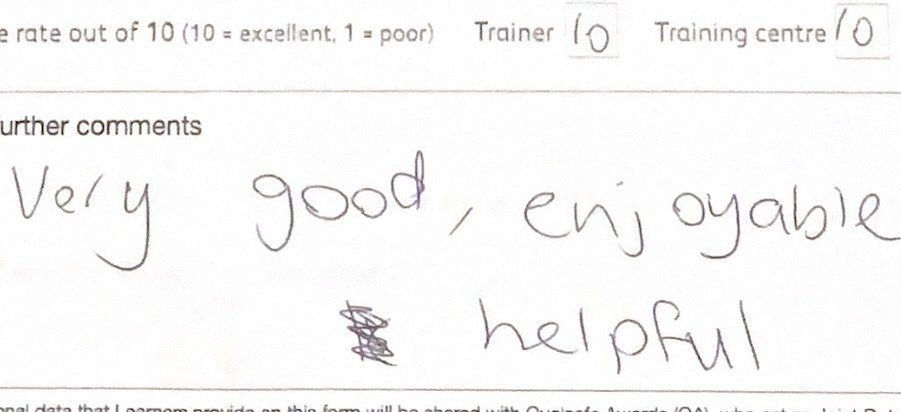 e rate out of 10 (10 = excellent, 1 = poor) Trainer 10 Training centre 10
urther comments
Very good, enjoyable
helpful
onal data that Learners provide on this form will be shared with Qualsafe Awards (QA), who